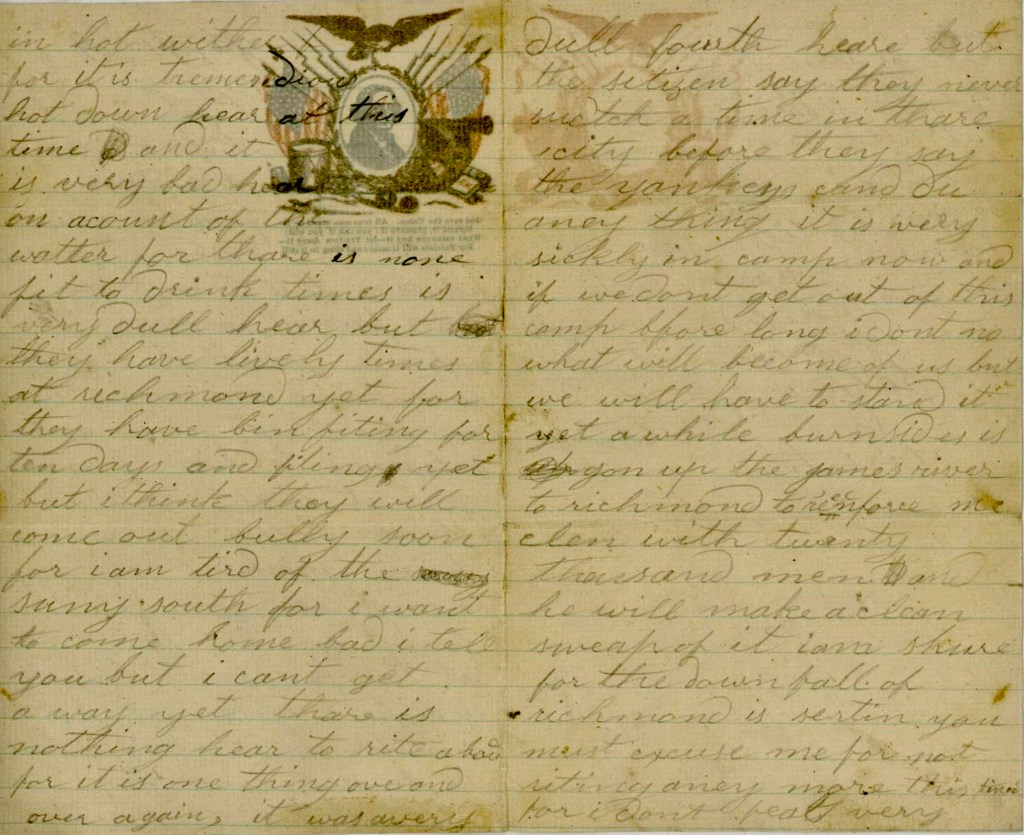 in hot wither
for it is tremendious
hot down hear at this
time and it
is very bad hear
on acount of the
watter for thare is none
fit to drink times is
very dull hear but
they have lively times
at richmond yet for
they have bin fiting for
ten days and fling yet
but i think they will
come out bully soon
for i am tird of the
suny south for i want
to come home bad i tell
you but i cant get
a way yet thare is
nothing hear to rite abou
for it is one thing ove and
over again, it was a very
dull fourth heare but
the sitizen say they never
suctch a time in thare
city before they say
the yankeys cand du
aney thing it is very
sickly in camp now and
if we dont get out of this
camp bfore long i dont no
what will become of us but
we will have to stand it
yet a while burnsides is
gon up the james river
to richmond to reenforce mc
clen with twenty
thousand men and
he will make a clean
sweap of it i am shure
for the down fall of
richmond is sertin you
must excuse me for not
riting aney more this time
for i dont feal very